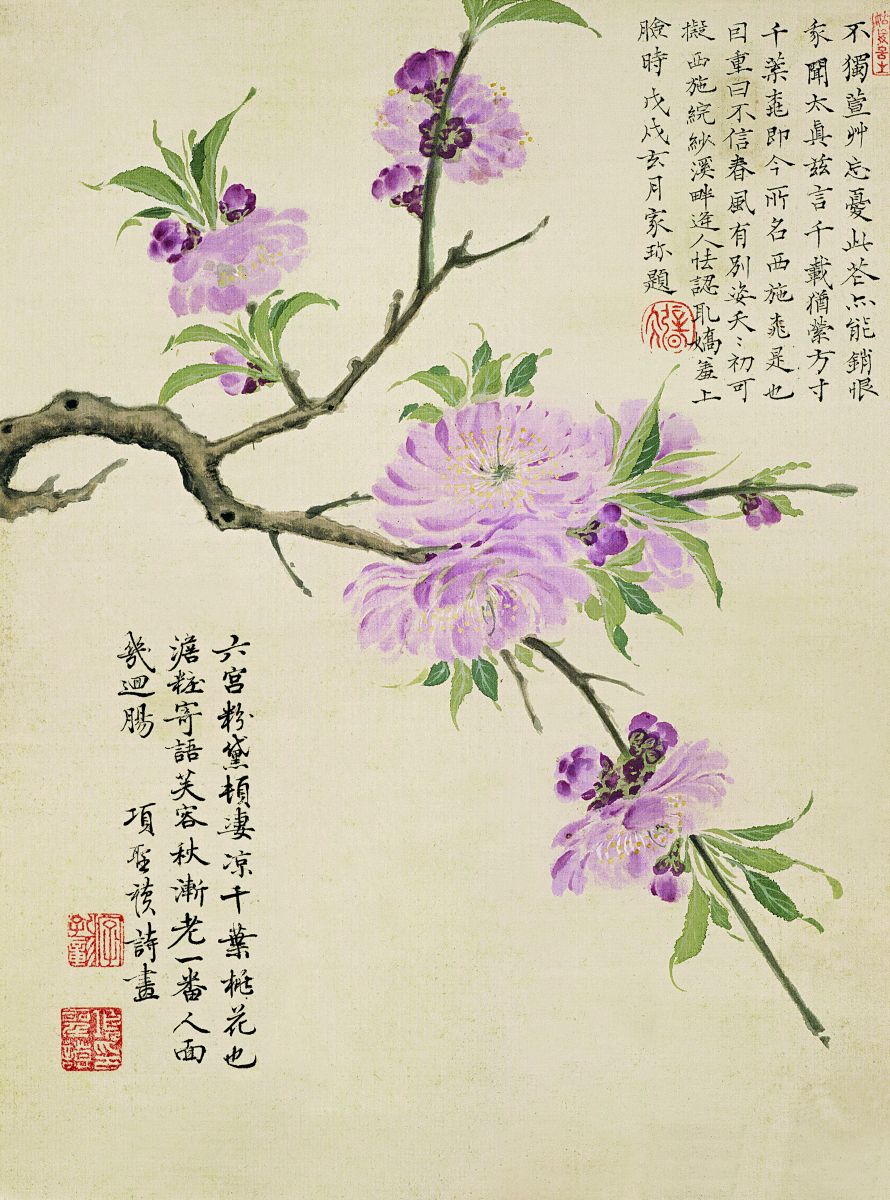 不獨萱艸忘憂此花亦能銷恨
我聞太眞玆言千載猶縈方寸
千葉桃即今所名西施桃是也
囙重曰不信春風有別姿夭〻初可
擬西施綄紗溪畔逄人怯認耴嬌羞上
臉時戊戌玄月家珎題
六宮粉黛頓凄凉千葉桃花也
澹粧寄語芙容秋漸老一番人面
幾迴腸
項聖謨詩畫